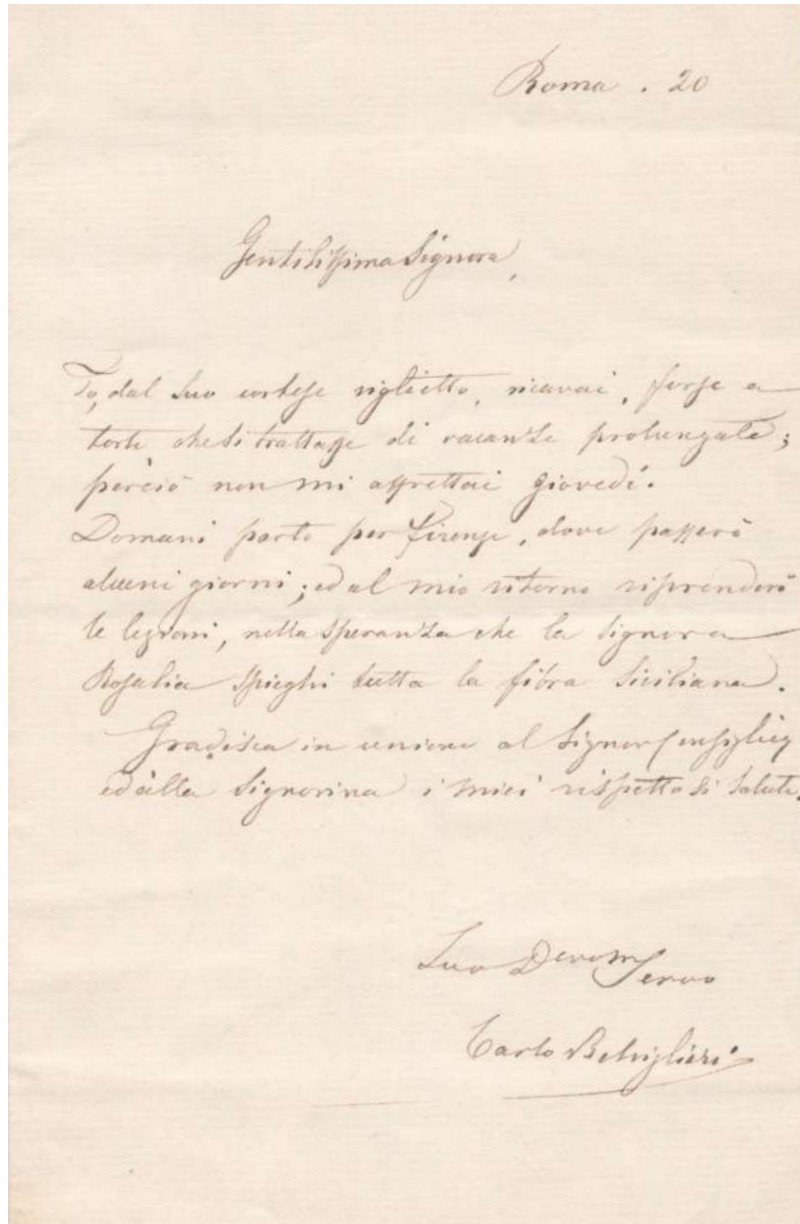 Roma . 20
Gentilissima Signora,
Io, dal suo cortese viglietto, ricavai, forse a
torto che si trattasse di vacanze prolungate;
perciò non mi affrettai giovedì.
Domani parto per Firenze, dove passerò
alcuni giorni; ed al mio ritorno riprenderò
le lezioni, nella speranza che la Signora
Rosalia spieghi tutta la fibra Siciliana.
Gradisca in unione al Signor
ed alla Signorina i miei rispettosi saluti.
Suo Devom Servo
Carlo Belviglieri